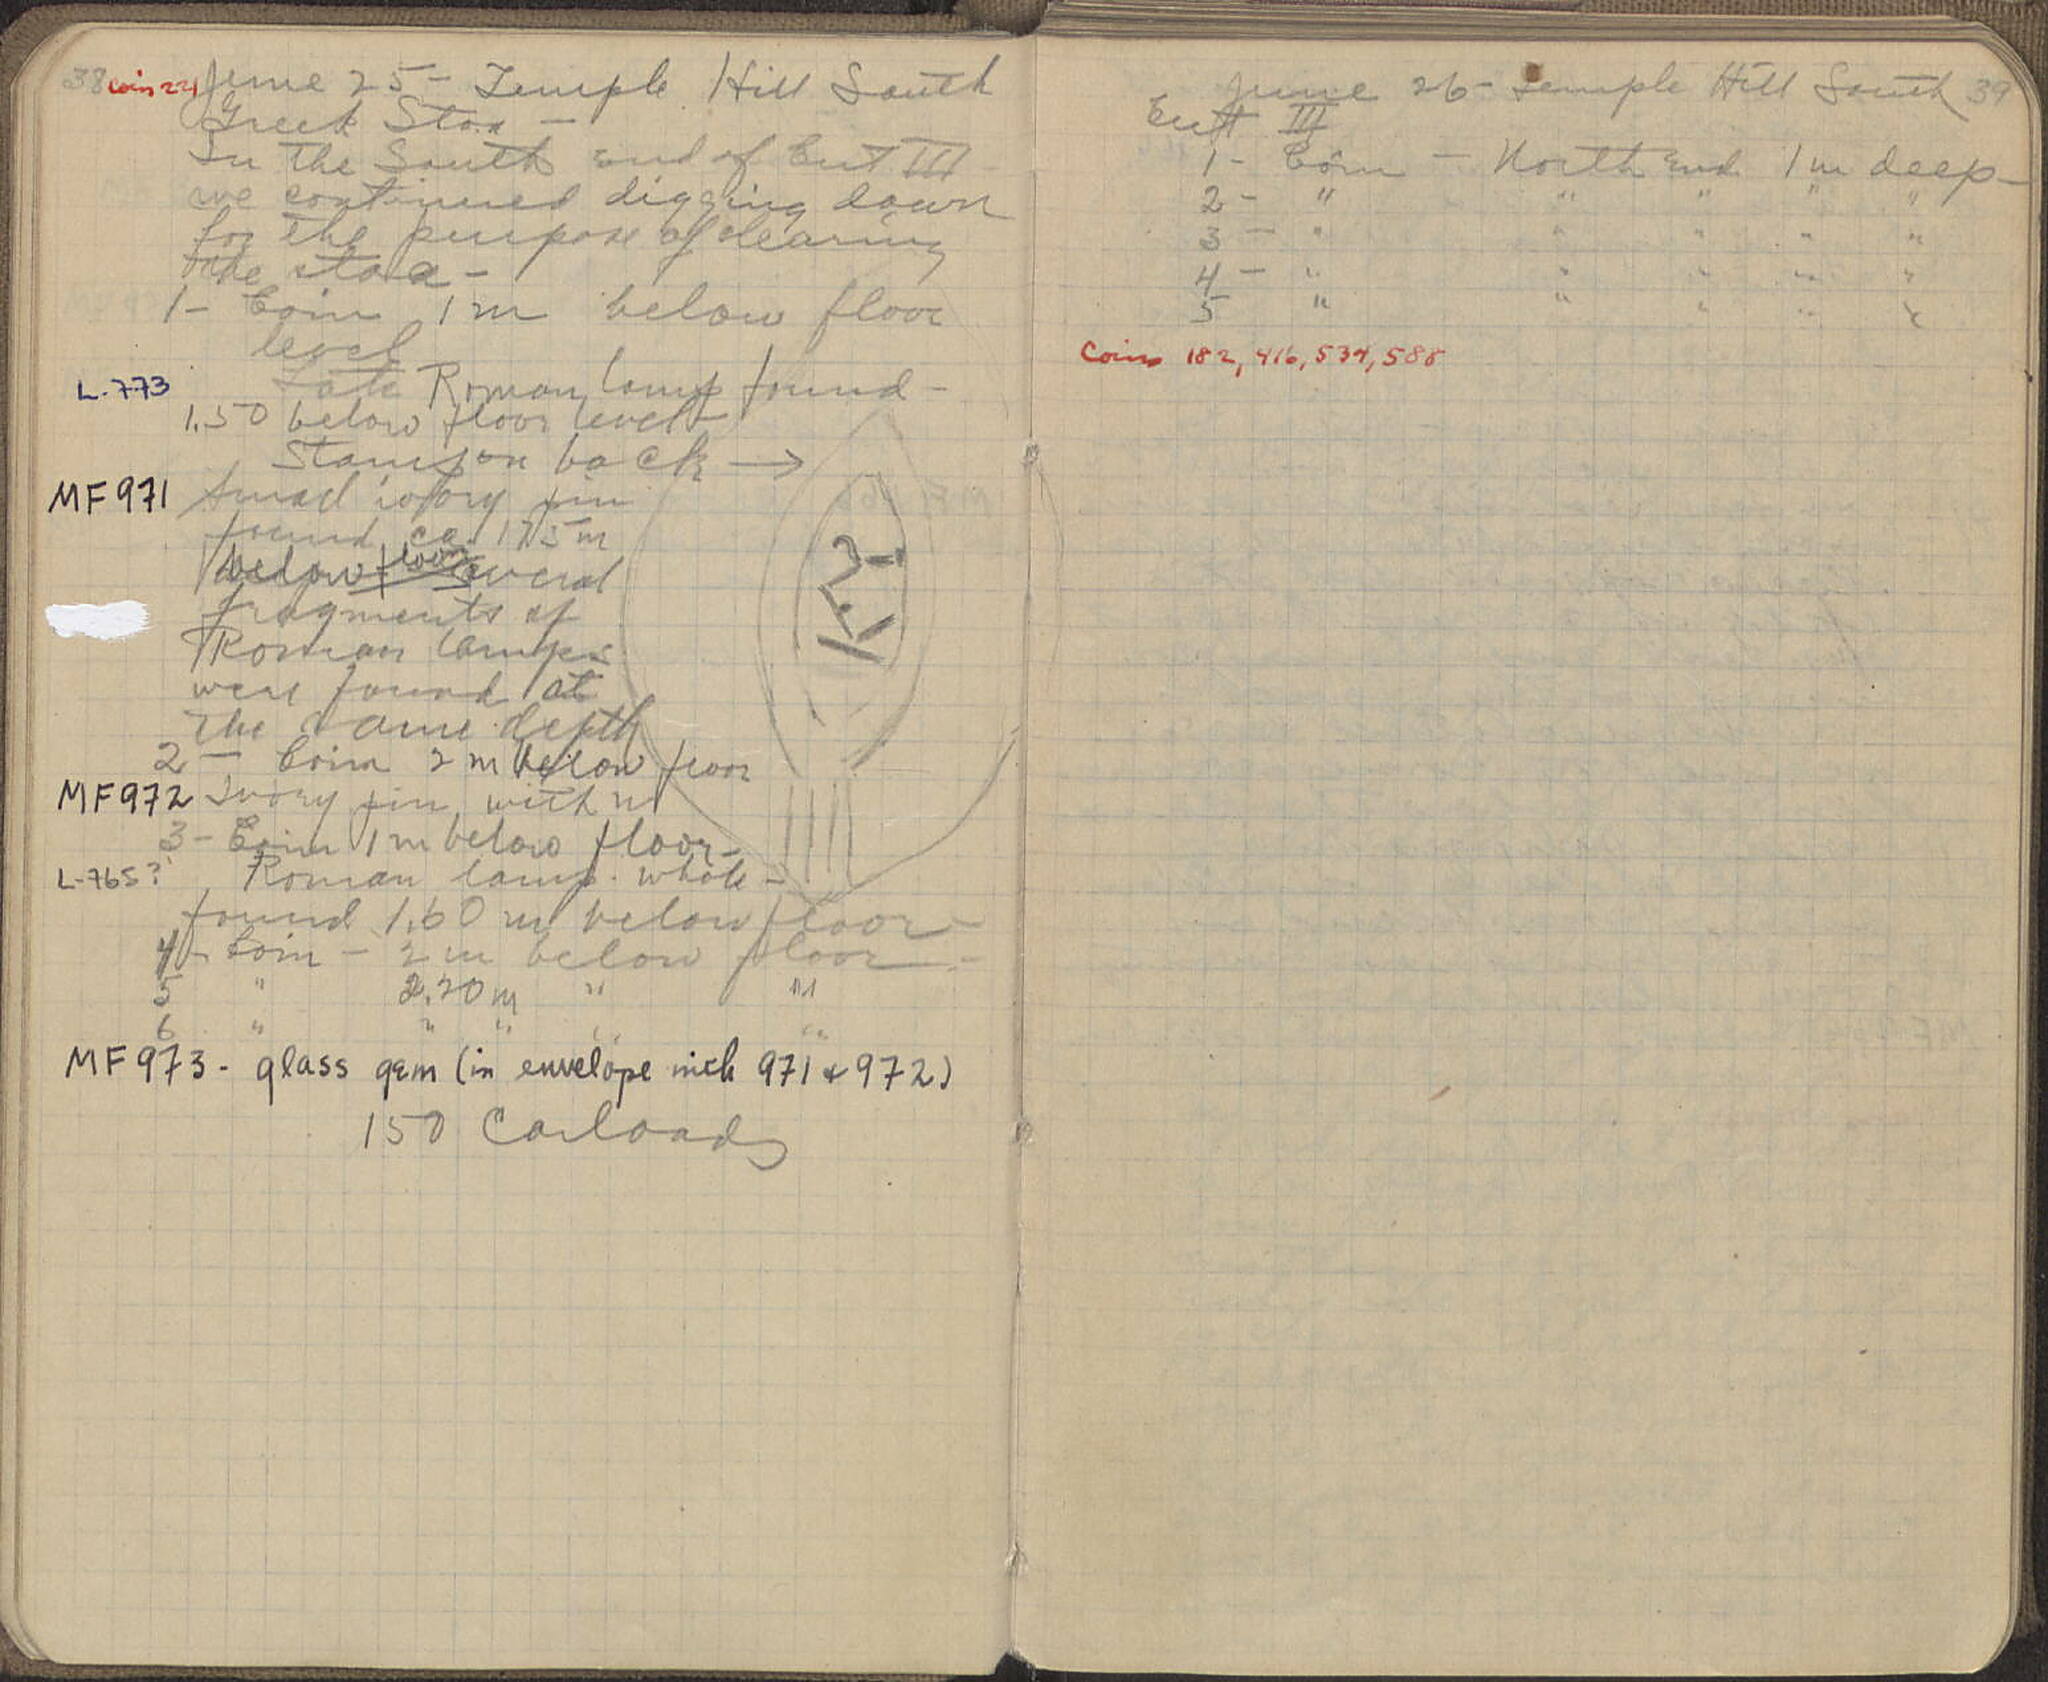 38 Coin 221 June 25 - Temple Hill South
Greek Stoa -
In the South end of Cut III
we continued digging down
for the purpose of clearing
the stoa -
1 - Coin 1 m below floor
level
L-773 Late Roman lamp found -
1.50 below floor level
Stamp on back →
MF971 Small ivory pin
found ca. 1.75 m
below floor Several
fragments of
Roman lamps
were found at
the same depth
2 - Coin 2 m below floor
MF972 Ivory pin with
3 - Coin 1 m below floor -
L-765? Roman lamp. whole -
found 1.60 m below floor -
4 - Coin - 2 m below floor -
5 " 2.20 m " "
6 " " " " "
MF973 - glass gem (in envelope with 971 & 972)
150 Carloads
June 26 - Temple Hill South 39
Cut III
1 - Coin - North end 1 m deep -
2 - " " " " "
3 - " " " " "
4 - " " " " "
5 " " " " "
Coins 182, 416, 534, 588